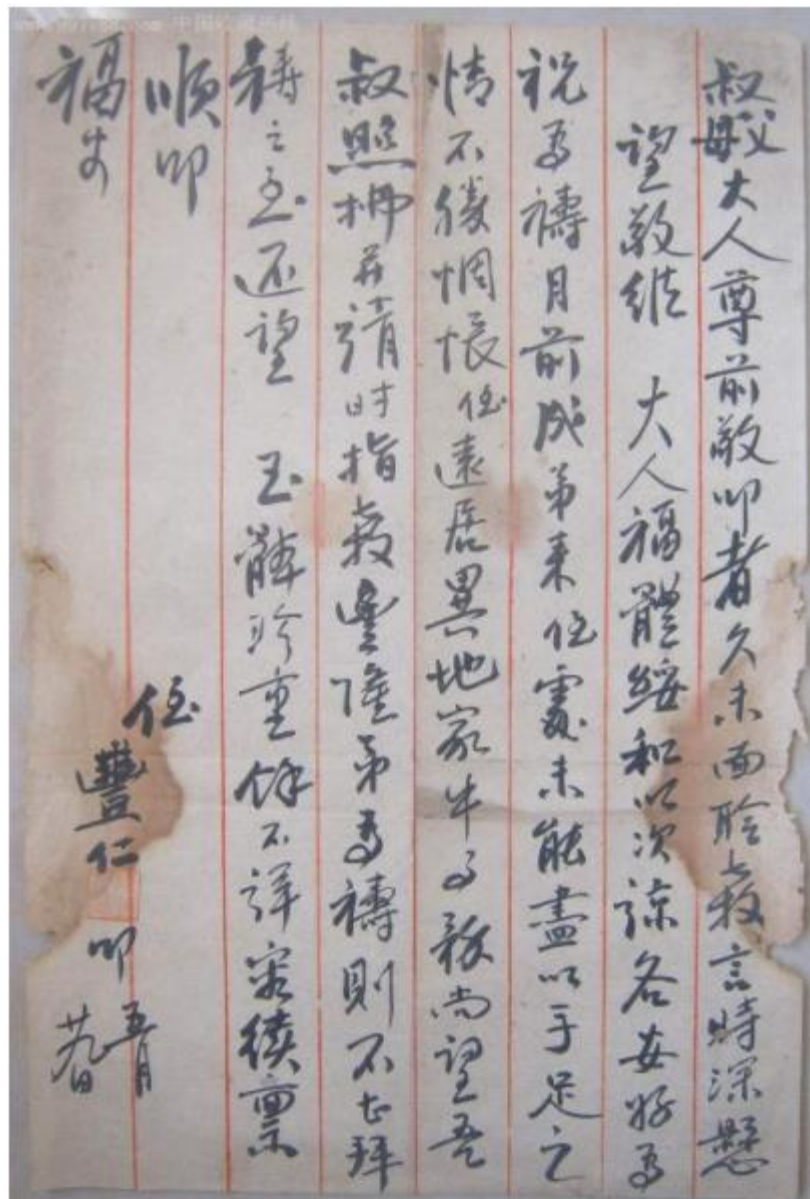 叔父母大人尊前敬叩者久未面聆教言時深懸
望敬維 大人福體綏和以次諒各安好為
祝為禱目前成弟來侄處未能盡以手足之
情不勝惆悵侄遠居異地家中事務尚望吾
叔照拂并請時指教豐隆弟為禱則不甚拜
禱之至还望 玉體珍重餘不詳容續禀
順叩
福安
侄豐仁 叩 五月
廿九日